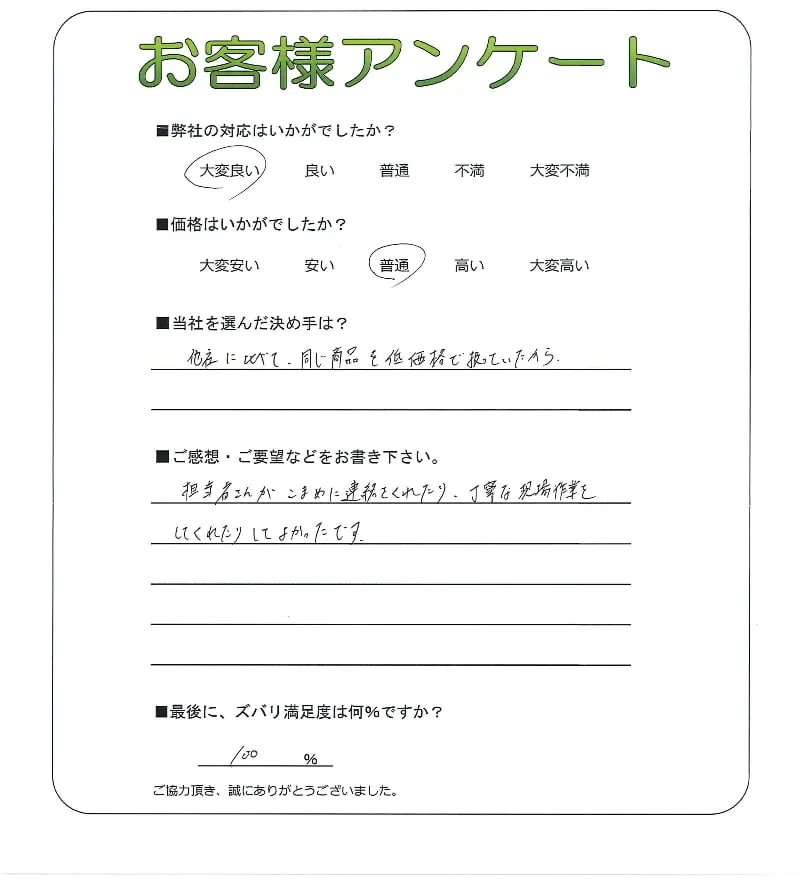 お客様アンケート
■弊社の対応はいかがでしたか？
大変良い 良い 普通 不満 大変不満
■価格はいかがでしたか？
大変安い 安い 普通 高い 大変高い
■当社を選んだ決め手は？
他店に比べて、同じ商品を低価格で扱っていたから。
■ご感想・ご要望などをお書き下さい。
担当者さんがこまめに連絡をくれたり、丁寧な現場作業を
してくれたりしてよかったです。
■最後に、ズバリ満足度は何％ですか？
100 ％
ご協力頂き、誠にありがとうございました。